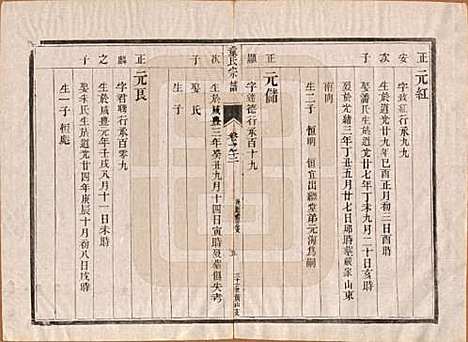 正
元紅
安
字致紅行九九
子
生於道光廿九年己酉正月初三日酉時
娶潘氏生於道光廿七年丁未九月二十日亥時
歿於光緒三年丁丑五月廿七日戌時墓嚴家山東
南向
生二子 恒明 恒宜出繼堂弟元海爲嗣
正
元儲
顯
字蓮德行承百十九
次
生於咸豐三年癸丑九月十四日寅時歿墓俱失考
子
娶 氏
生 子
章氏宗譜
正
元良
麟
字君聰行承百零九
之
生於咸豐元年七月十八一日未時
子
娶朱氏生於道光廿四年庚辰十月初八日戌時
生一子 恒彪